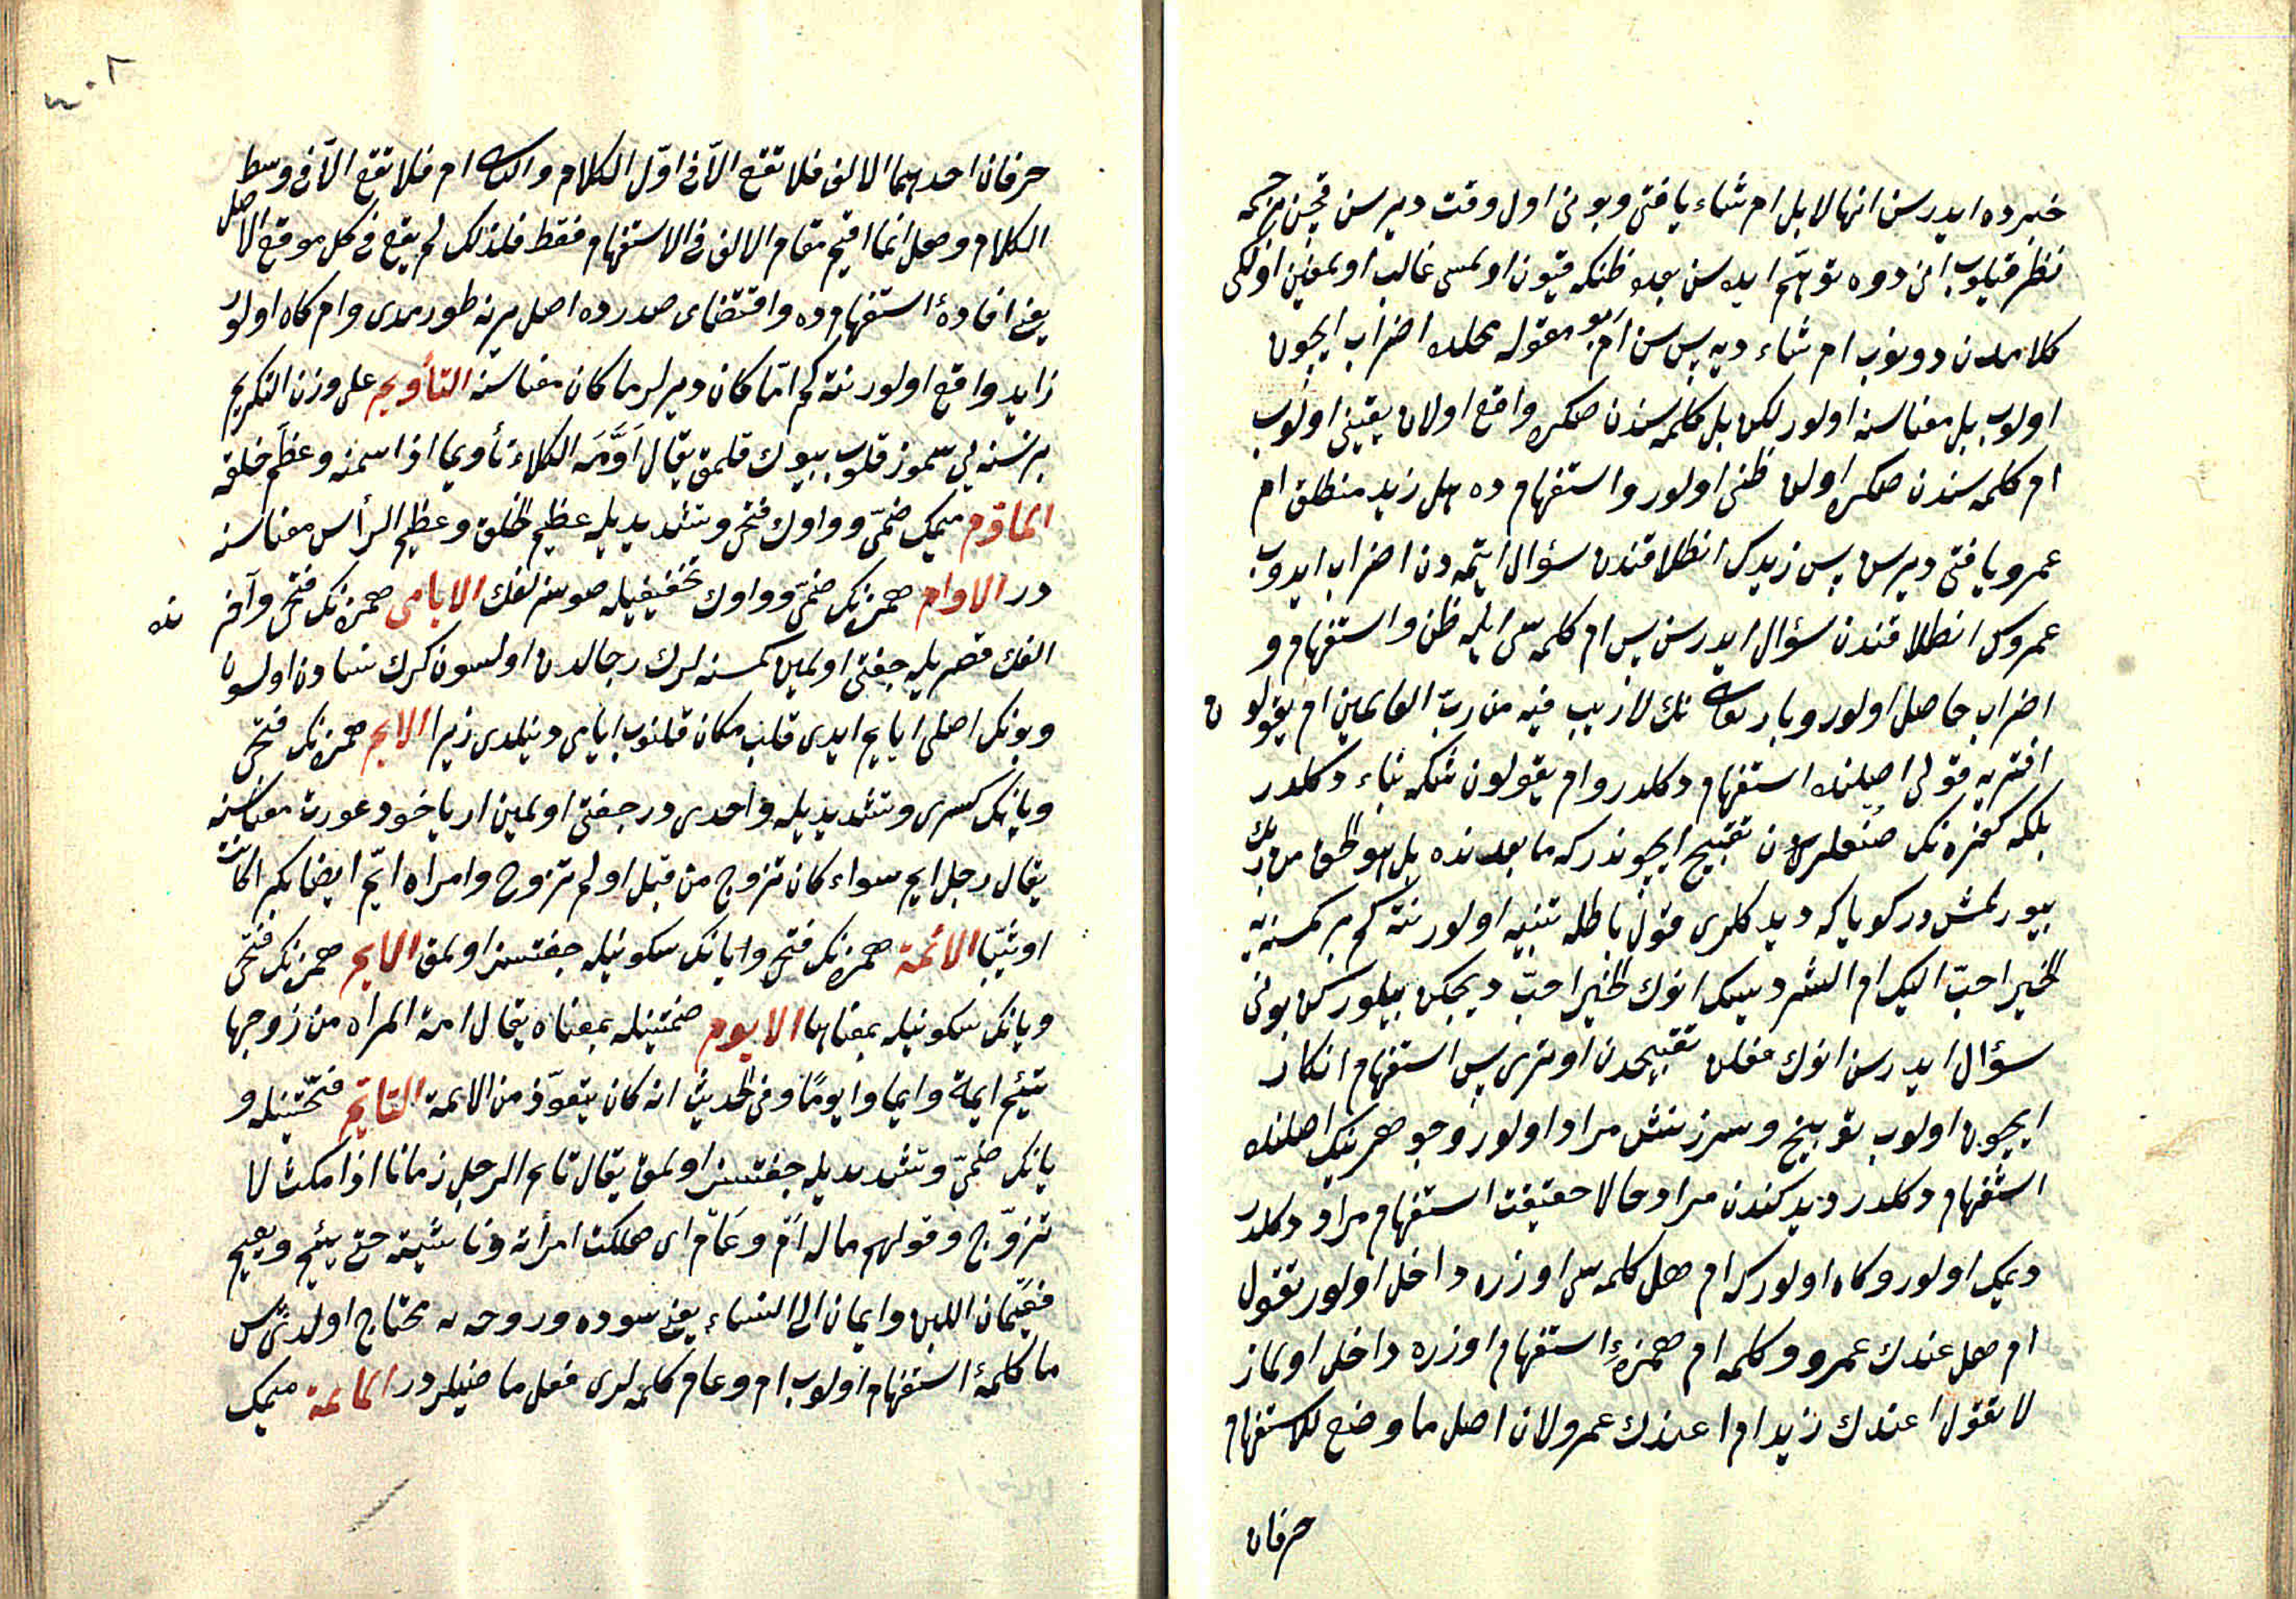 خبرده ایدرسن انها لابل ام شاء یا فتى وبونی اول وقت دیرسن قچن بر جسمه
نظر قیلوب انی دوه توهّم ایده سن بعده ظنکه قیون اولمسی غالب اولمغین اولکی
کلامدن دونوب ام شاء دیه سن پس ام بو مقوله محلده اضراب ایچون
اولوب بل معناسنه اولور لکن بل کلمه سندن صکره واقع اولان یقینی اولوب
ام کلمه سندن صکره اولان ظنی اولور واستفهام ده هل زید منطلق ام
عمرو یا فتى دیرسن پس زیدک انطلاقندن سؤال ایتمه دن اضراب ایدوب
عمروک انطلاقندن سؤال ایدرسن پس ام کلمه سی ایله ظن واستفهام و
اضراب حاصل اولور وباری تعالی نک لا ریب فیه من ربّ العالمین ام یقولون
افتریه قولی اصلنده استفهام دکلدر وام یقولون شکه بناء دکلدر
بلکه کفره نک صنعلرین تقبیح ایچوندر که ما بعدنده بل هو الحق من ربک
بیورلمشدر کویا که دیدکلری قول باطله تنبیه اولور نته کم بر کمسنه یه
الخیر احبّ الیک ام الشر دیسک انوک الخیر احبّ دیجکن بیلورکن بونی
سؤال ایدرسن انوک فعلن تقبیحدن اوتری پس استفهام انکار
ایچون اولوب توبیخ وسرزنش مراد اولور وجوهرینک اصلنده
استفهام دکلدر دیدکندن مراد حالا حقیقت استفهام مراد دکلدر
دیمک اولور وکاه اولور که ام هل کلمه سی اوزره داخل اولور تقول
ام هل عندک عمرو وکلمه ام همزهٔ استفهام اوزره داخل اولماز
لا تقول اعندک زید ام اعندک عمرو لان اصل ما وضع للاستفهام
حرفان
حرفان احدیهما الالف فلا تقع الاّ فی اوّل الکلام والثانیة ام فلا تقع الاّ فی وسط
الکلام وهل انما اقیم مقام الالف فی الاستفهام فقط فلذلک لم یقع فی کل موقع الاصل
یعنی افادهٔ استفهام ده واقتضای صدرده اصل یرنه طورمدی وام کاه اولور
زاید واقع اولور نته کم امّا کان دیرلر ما کان معناسنه التأویم علی وزن التکریم
بر نسنه یی سموز قلوب بیوک قلمق یقال اَوَّمَه الکلاء تأویما اذا سمنه وعظّم خلقه
المأوّم میمک ضمّی وواوک فتحی وتشدیدیله عظیم الخلق وعظیم الرأس معناسنه
در الاوام همزه نک ضمّی وواوک تخفیفیله صوسزلغک الایامی همزه نک فتحی وآخرنده
الفک قصریله جفتی اولمین کمسنه لرک رجالدن اولسون کرک نسادن اولسون
وبونک اصلی ایایم ایدی قلب مکان قلنوب ایامی دینلدی زیرا الایم همزه نک فتحی
ویانک کسری وتشدیدیله واحدی در جفتی اولمین ار یاخود عورت معناسنه
یقال رجل ایم سواء کان تزوج من قبل او لم تزوج وامراه ایّم ایضا بکرا کانت
او ثیّبا الائمة همزه نک فتحی ویانک سکونیله جفتسز اولمق الایم همزه نک فتحی
ویانک سکونیله بمعناها الایوم ضمتینله بمعناه یقال امت المراه من زوجها
تئیم ایمة وایما وایومًا وفی الحدیث انه کان یتعوّذ من الایمة التایّم فتحتینله و
یانک ضمّی وتشدیدیله جفتسز اولمق یقال تایم الرجل زمانا اذا مکث لا
تزوّج وقولهم ماله آم وعام ای هلکت امرأته وماشیته حتى یئیم ویعیم
فعَیمان الی اللبن وایمان الی النساء یعنی سوده وروحه یه محتاج اولدی پس
ما کلمهٔ استفهام اولوب ام وعام کلمه لری فعل ماضیلردر المائمة میمک